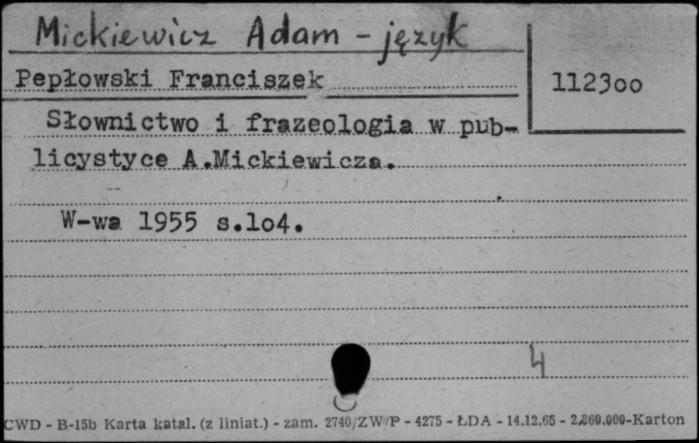 Mickiewicz Adam - język
Pepłowski Franciszek
1123oo
Słownictwo i frazeologia w pub-
licystyce A.Mickiewicza.
W-wa 1955 s.1o4.
4
CWD - B-15b Karta katal. (z liniat.) - zam. 2740/ZW/P - 4275 - ŁDA - 14.12.65 - 2.860.000-Karton